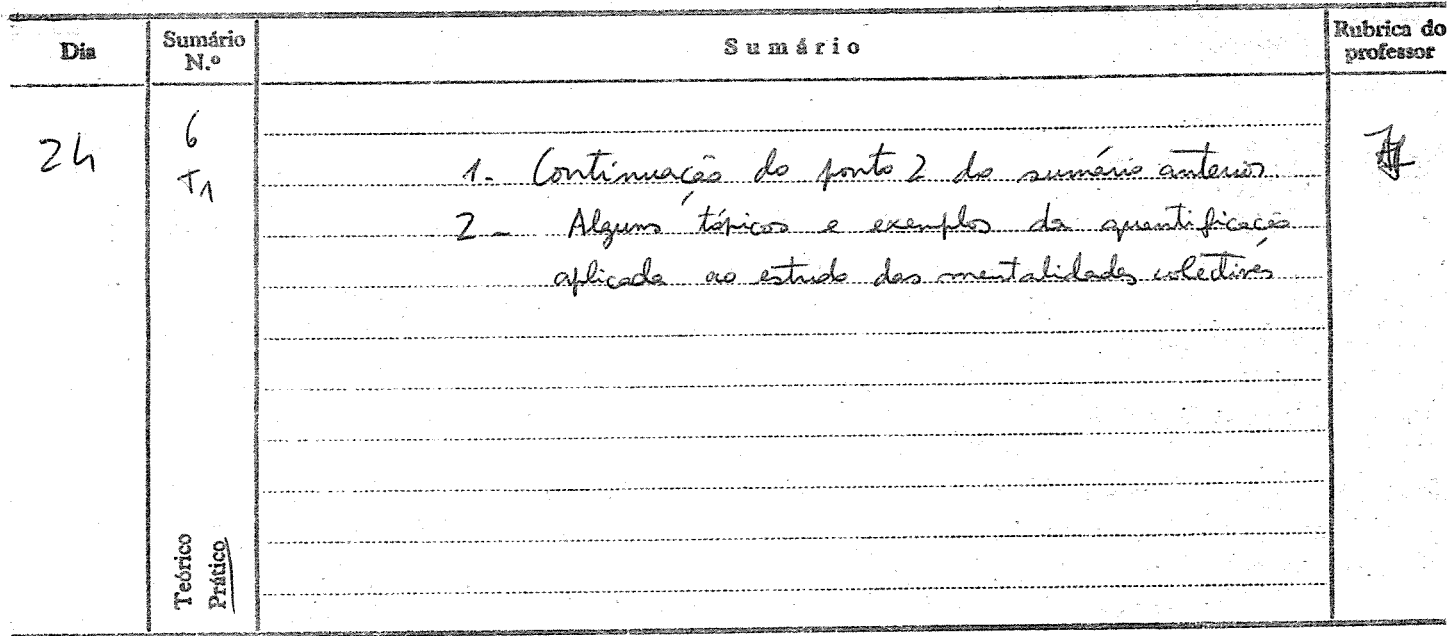 Dia
Sumário N.º
Sumário
Rubrica do professor
24
6
T1
1. Continuação do ponto 2 do sumário anterior.
2 - Alguns tópicos e exemplos da quantificação
aplicada ao estudo das mentalidades colectivas
Teórico
Prático